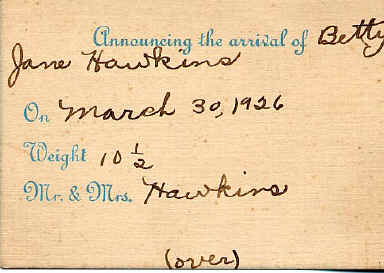 Announcing the arrival of Betty
Jane Hawkins
On March 30, 1926
Weight 10 ½
Mr. & Mrs. Hawkins
(over)